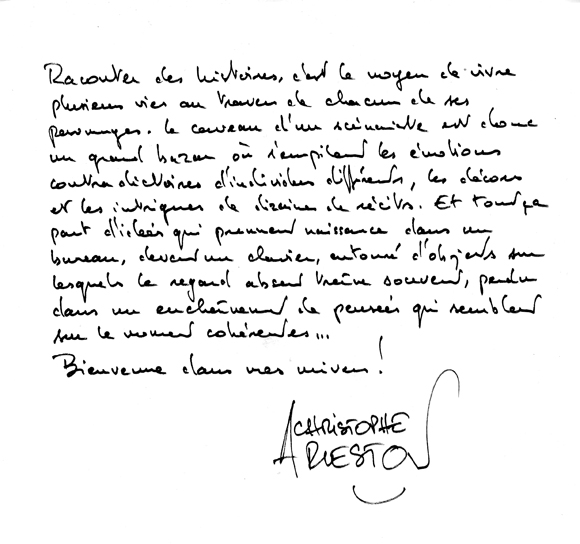 Raconter des histoires, c'est le moyen de vivre
plusieurs vies au travers de chacun de ses
personnages. Le cerveau d'un scénariste est donc
un grand bazar où s'empilent les émotions
contradictoires d'individus différents, les décors
et les intrigues de dizaine de récits. Et tout ça
part d'idées qui prennent naissance dans un
bureau, devant un clavier, entouré d'objets sur
lesquels le regard absent traîne souvent, perdu
dans un enchaînement de pensées qui semblent
sur le moment cohérentes...
Bienvenue dans mes univers!
CHRISTOPHE
ARLESTON